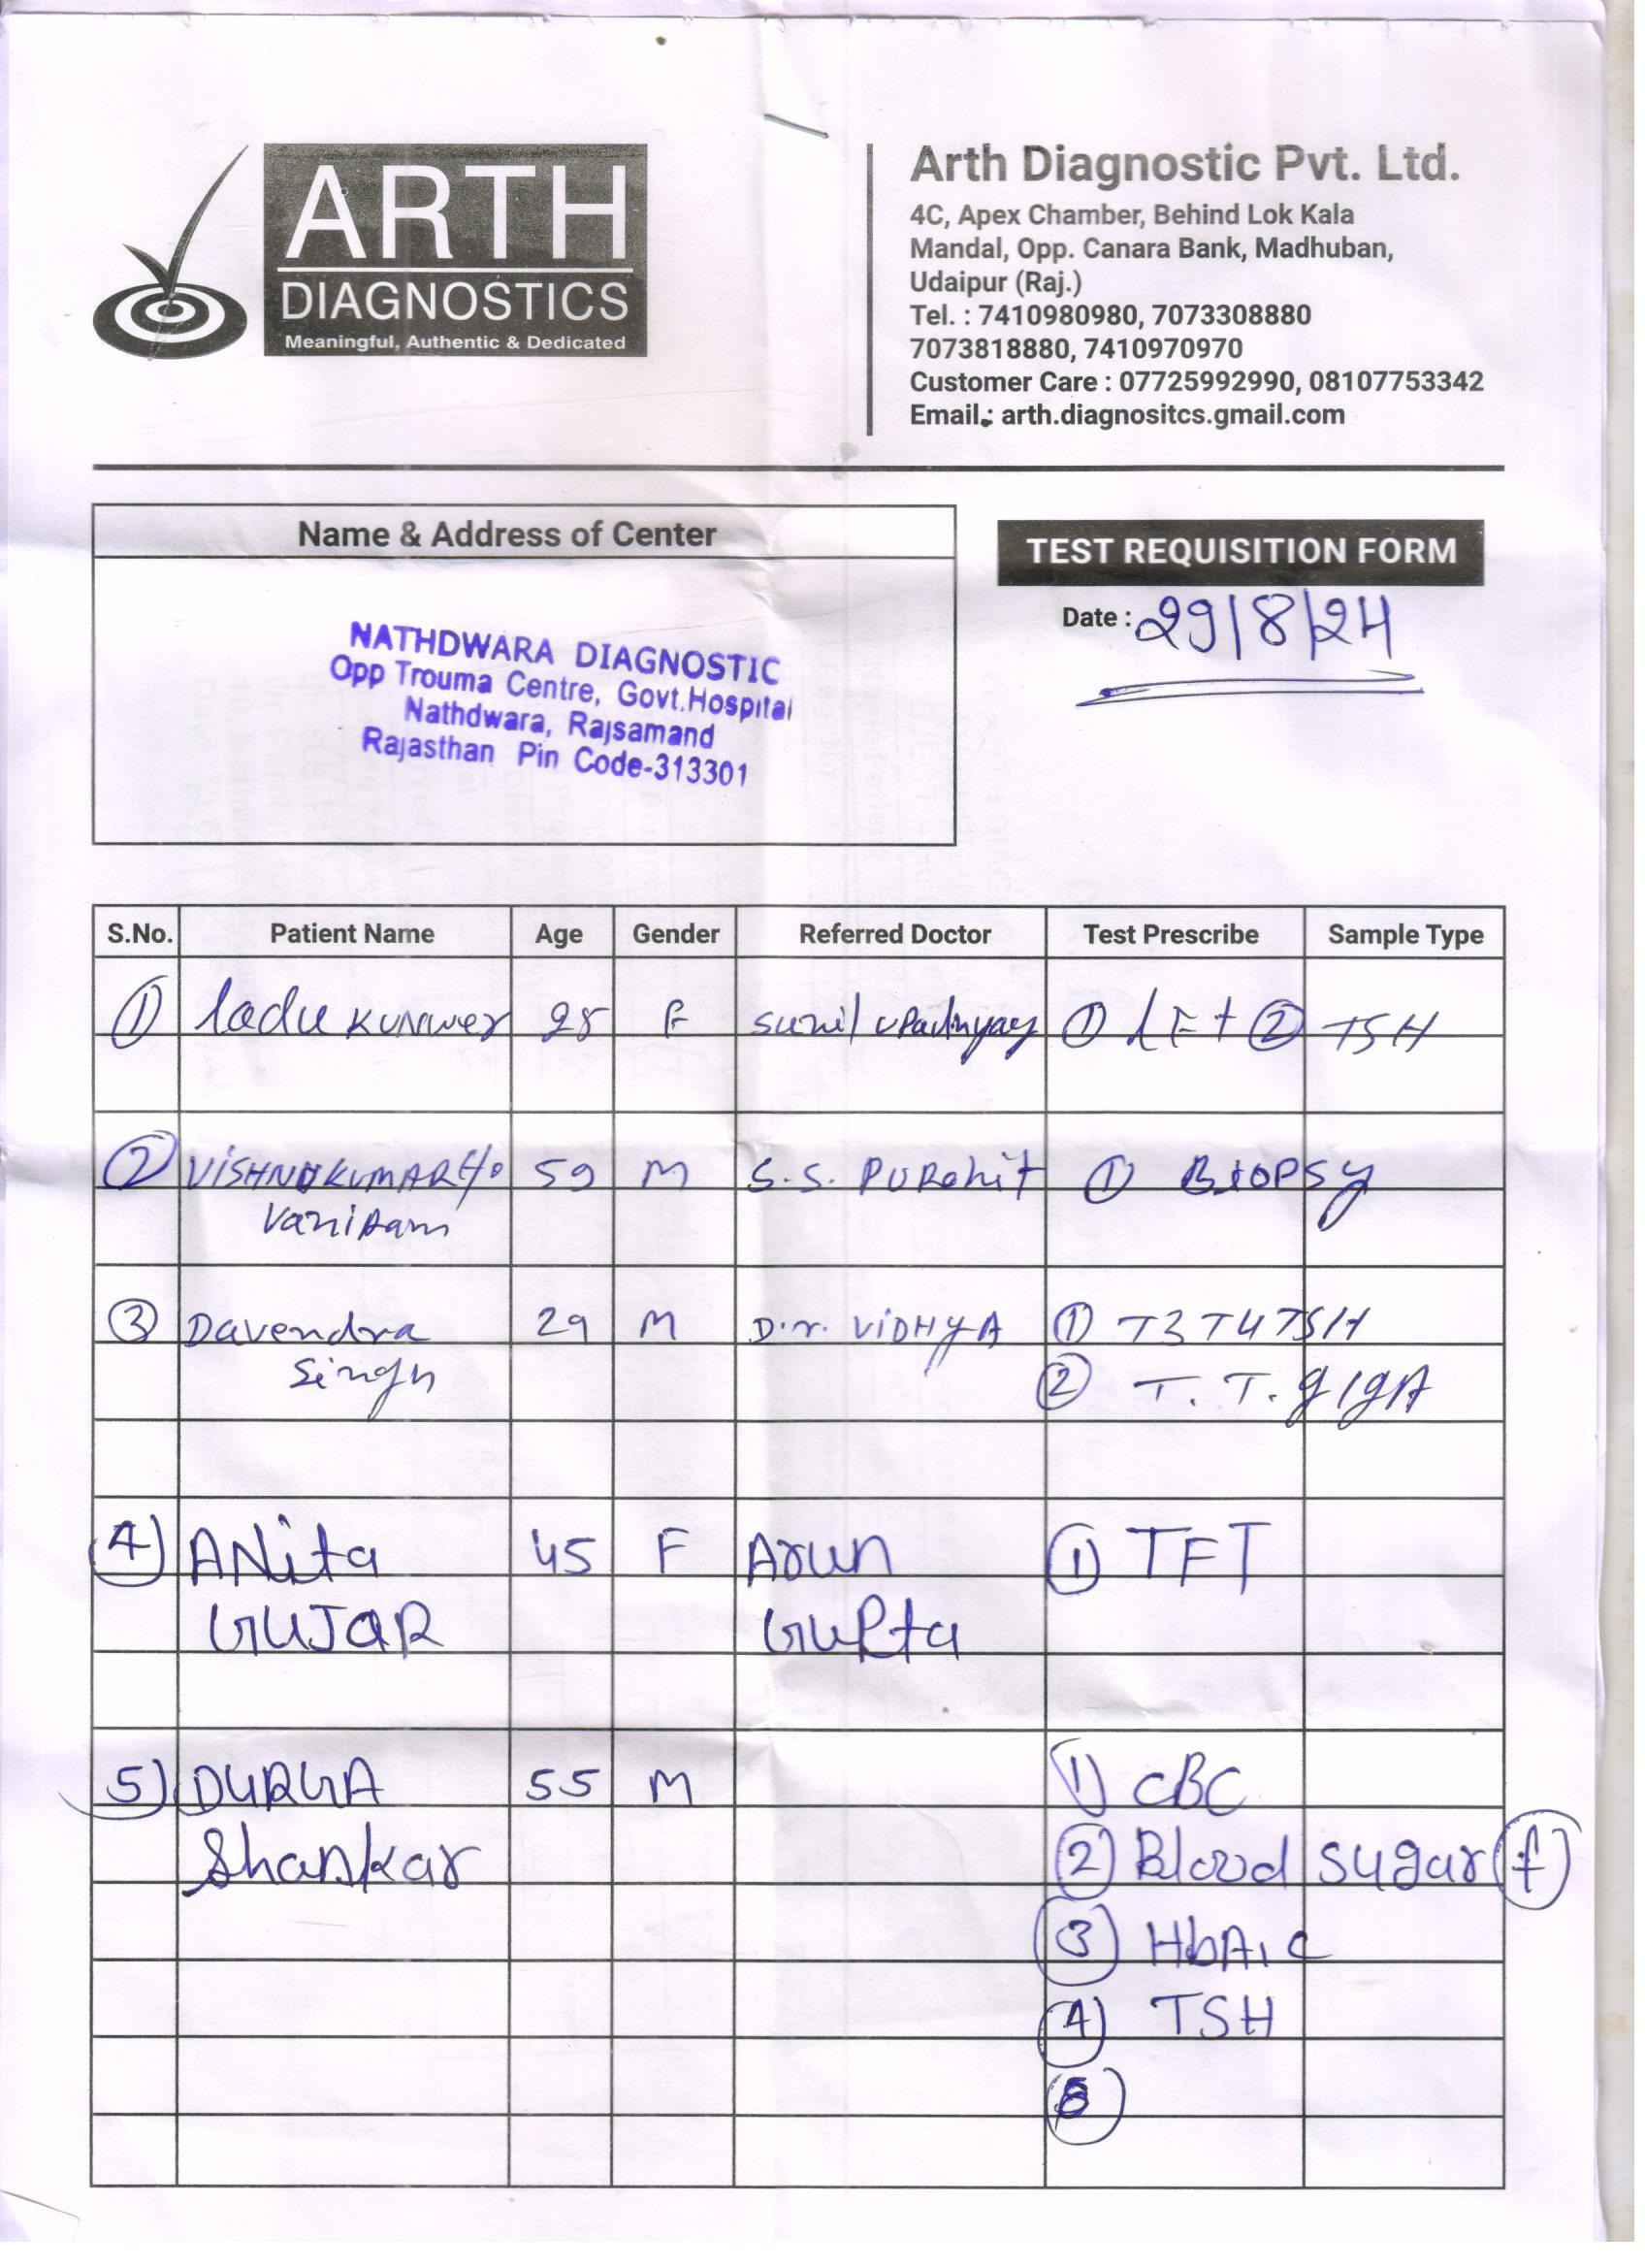 ARTH
DIAGNOSTICS
Meaningful, Authentic & Dedicated
Arth Diagnostic Pvt. Ltd.
4C, Apex Chamber, Behind Lok Kala
Mandal, Opp. Canara Bank, Madhuban,
Udaipur (Raj.)
Tel. : 7410980980, 7073308880
7073818880, 7410970970
Customer Care : 07725992990, 08107753342
Email.: arth.diagnositcs.gmail.com
Name & Address of Center
NATHDWARA DIAGNOSTIC
Opp Trouma Centre, Govt.Hospital
Nathdwara, Rajsamand
Rajasthan Pin Code-313301
TEST REQUISITION FORM
Date : 29/8/24
S.No. Patient Name Age Gender Referred Doctor Test Prescribe Sample Type
① ladu kunwer 28 F sunil upadhyay ① LFt ② TSH
② VISHNU KUMAR S/o 59 M S.S. PUROhit ① BIOPSy
Vaniram
③ Davendra 29 M D.r. ViDHyA ① T3 T4 TSH
Singh ② T.T.g IgA
4) ANita 45 F Arun ① TFT
GUJAR Gupta
5) DURGA 55 M 1) CBC
Shankar 2) Blood sugar (f)
3) HbA1c
4) TSH
5)